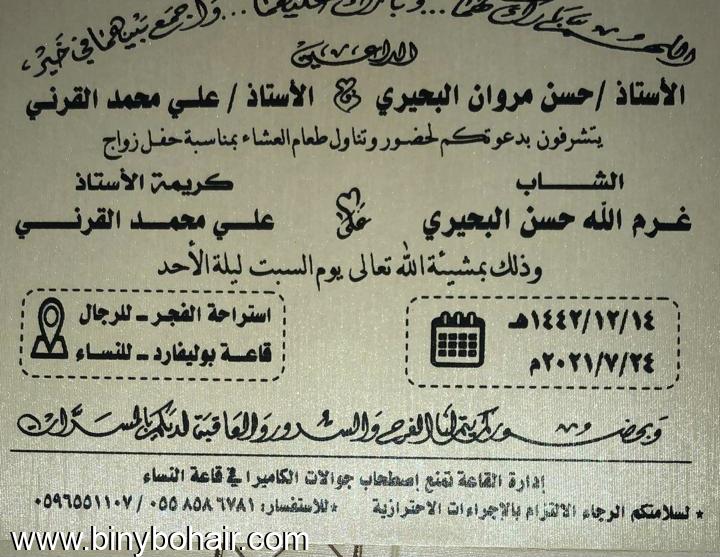 اللهم بارك لهما ... وبارك عليهما ... واجمع بينهما في خير
الداعين
الأستاذ / حسن مروان البحيري الأستاذ / علي محمد القرني
يتشرفون بدعوتكم لحضور وتناول طعام العشاء بمناسبة حفل زواج
الشاب كريمة الأستاذ
غرم الله حسن البحيري على علي محمد القرني
وذلك بمشيئة الله تعالى يوم السبت ليلة الأحد
١٤٤٢/١٢/١٤هـ
٢٠٢١/٧/٢٤م
استراحة الفجر - للرجال
قاعة بوليفارد - للنساء
وبحضوركم يتم لنا الفرح والسرور والعاقبة لديكم بالمسرات
إدارة القاعة تمنع إصطحاب جوالات الكاميرا في قاعة النساء
* لسلامتكم الرجاء الالتزام بالإجراءات الاحترازية * للاستفسار: ٠٥٥٨٥٨٦٧٨١ / ٠٥٩٦٥٥١١٠٧
www.binybohair.com